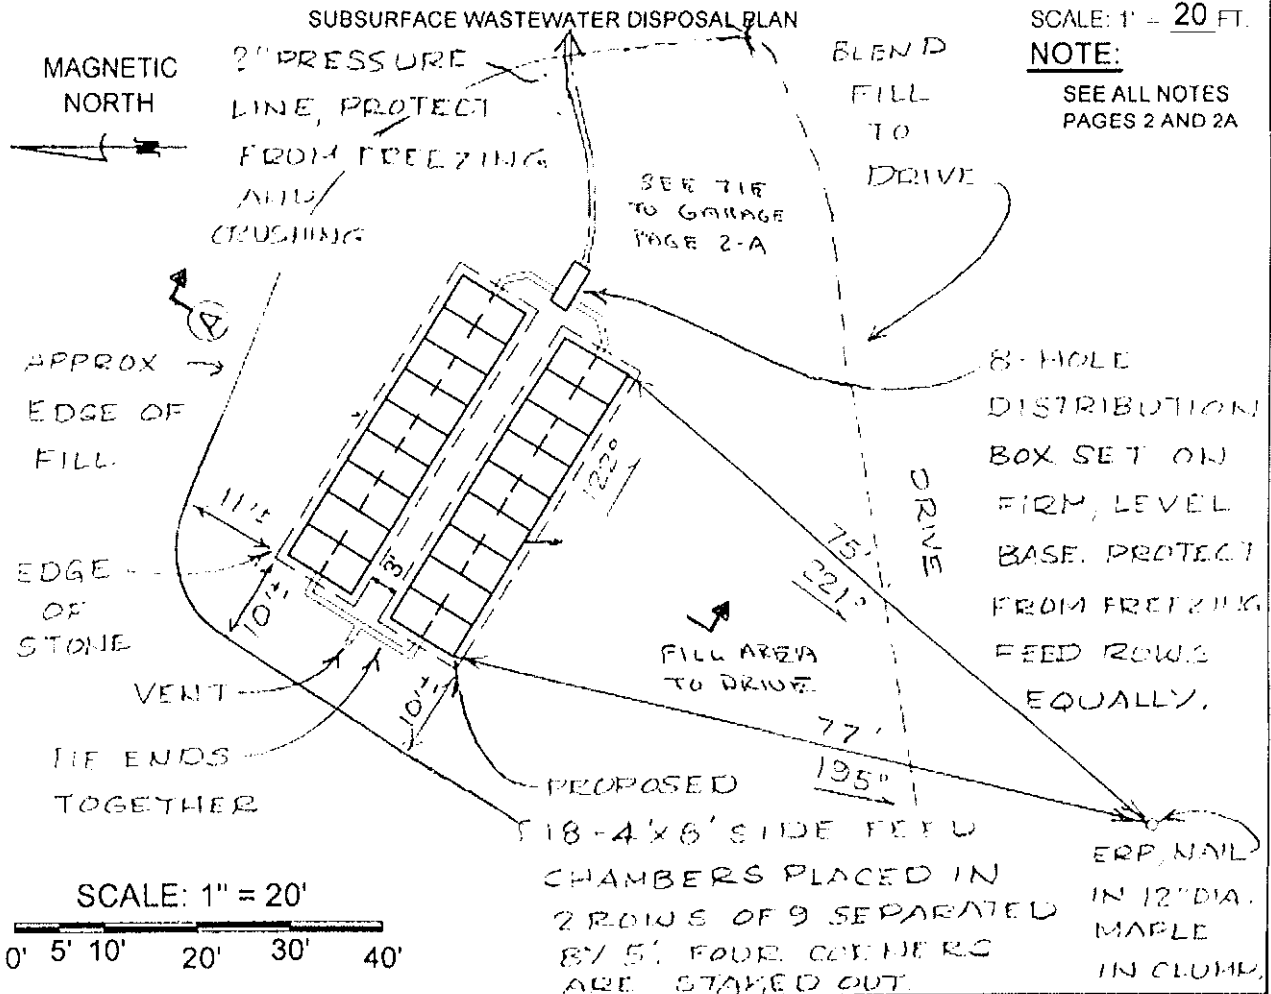 SUBSURFACE WASTEWATER DISPOSAL PLAN
SCALE: 1" = 20 FT.
NOTE:
SEE ALL NOTES
PAGES 2 AND 2A
MAGNETIC
NORTH
2" PRESSURE
LINE, PROTECT
FROM FREEZING
AND
CRUSHING
BLEND
FILL
TO
DRIVE
SEE TIE
TO GARAGE
PAGE 2-A
A
APPROX
EDGE OF
FILL.
8-HOLE
DISTRIBUTION
BOX SET ON
FIRM, LEVEL
BASE. PROTECT
FROM FREEZING
FEED ROWS
EQUALLY.
122°
DRIVE
11'±
75'
221°
3'
EDGE
OF
STONE
10'±
10'±
VENT
FILL AREA
TO DRIVE
77'
195°
TIE ENDS
TOGETHER
PROPOSED
18-4'X8' SIDE FEED
CHAMBERS PLACED IN
2 ROWS OF 9 SEPARATED
BY 5'. FOUR CORNERS
ARE STAKED OUT
ERP, NAIL
IN 12" DIA.
MAPLE
IN CLUMP.
SCALE: 1" = 20'
0' 5' 10' 20' 30' 40'